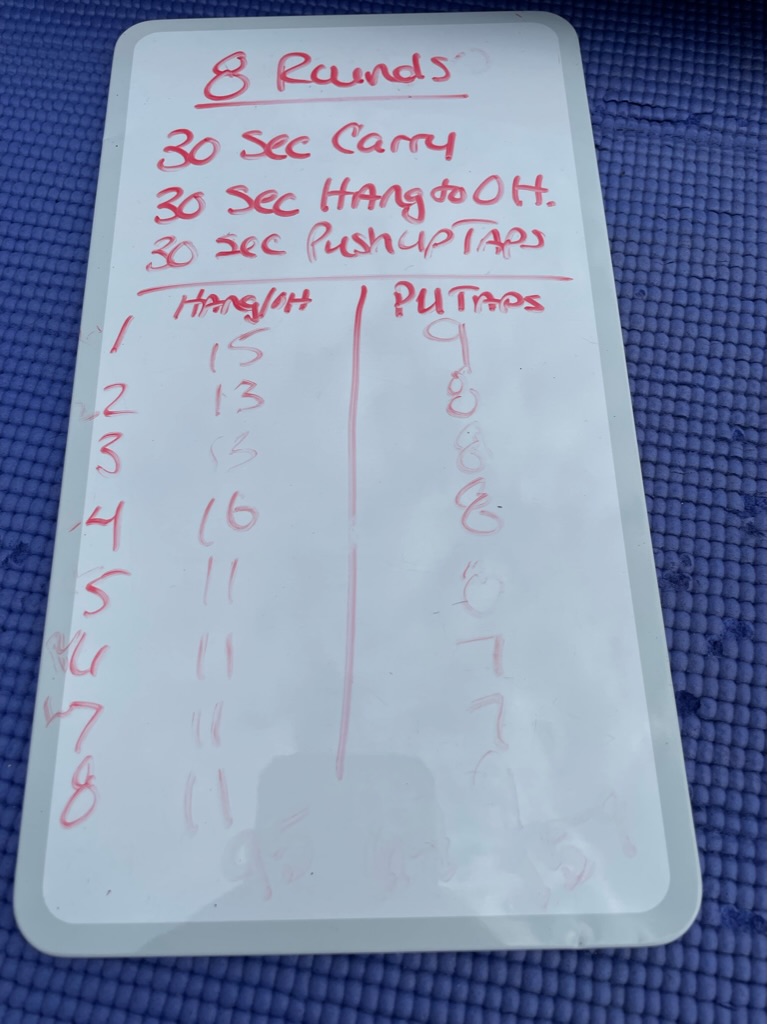 8 Rounds
30 Sec Carry
30 Sec HAng to OH.
30 Sec Push up TAPS
HAng/OH PU TAPS
1 15 9
2 13 8
3 13 8
4 16 8
5 11 8
6 11 7
7 11 7
8 11